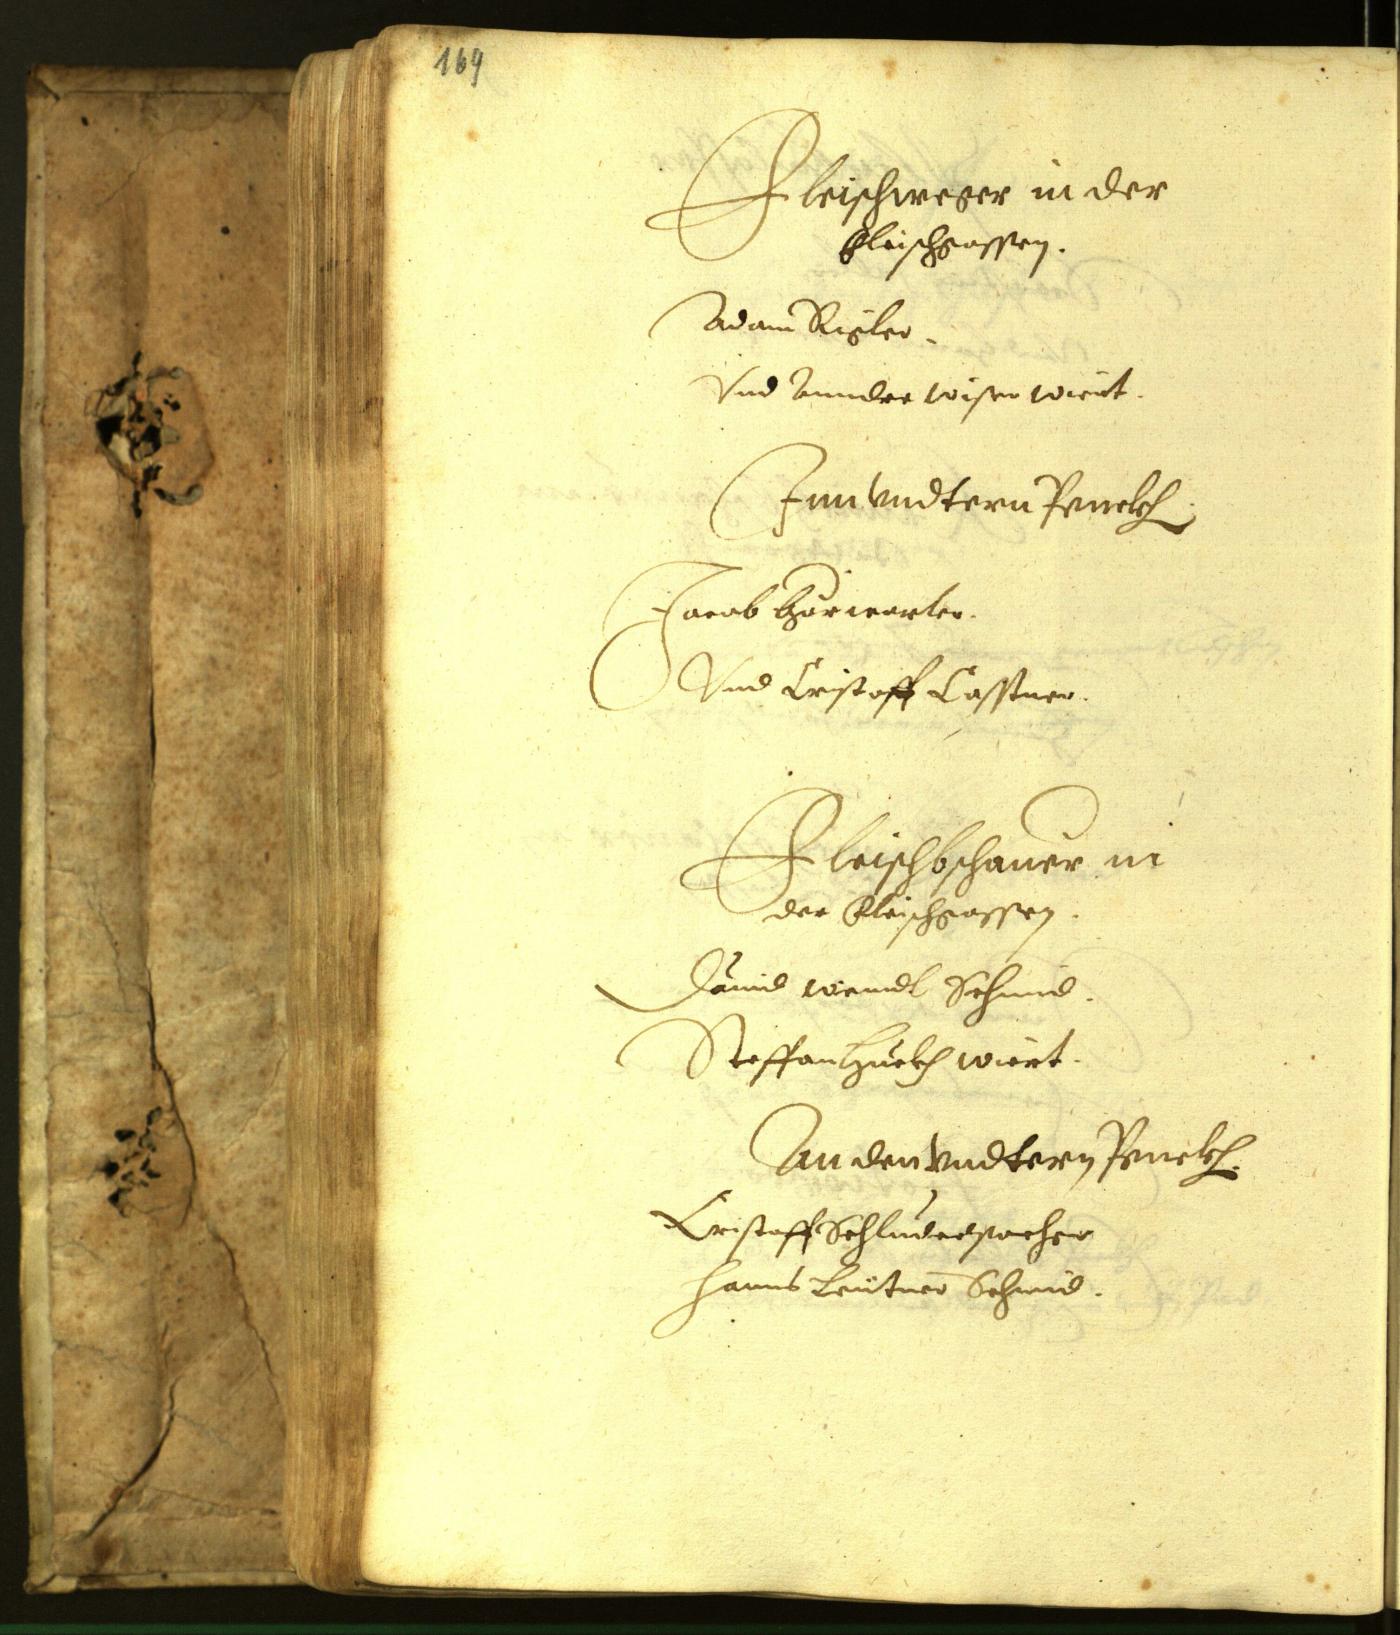 169
Fleischweger in der
Fleischgassen.
Adam Rigler.
Vnd Anndre wiser wiert.
Inn vndtern Penckh.
Jacob Hörwarter.
Vnd Cristoff Casstner.
Fleischbschauer in
der Fleischgassen.
Dauid Wendl Schmid.
Steffan Huebh wiert.
An den vndtern Penckh.
Cristoff Schluderspacher
Hanns Leutner Schmid.